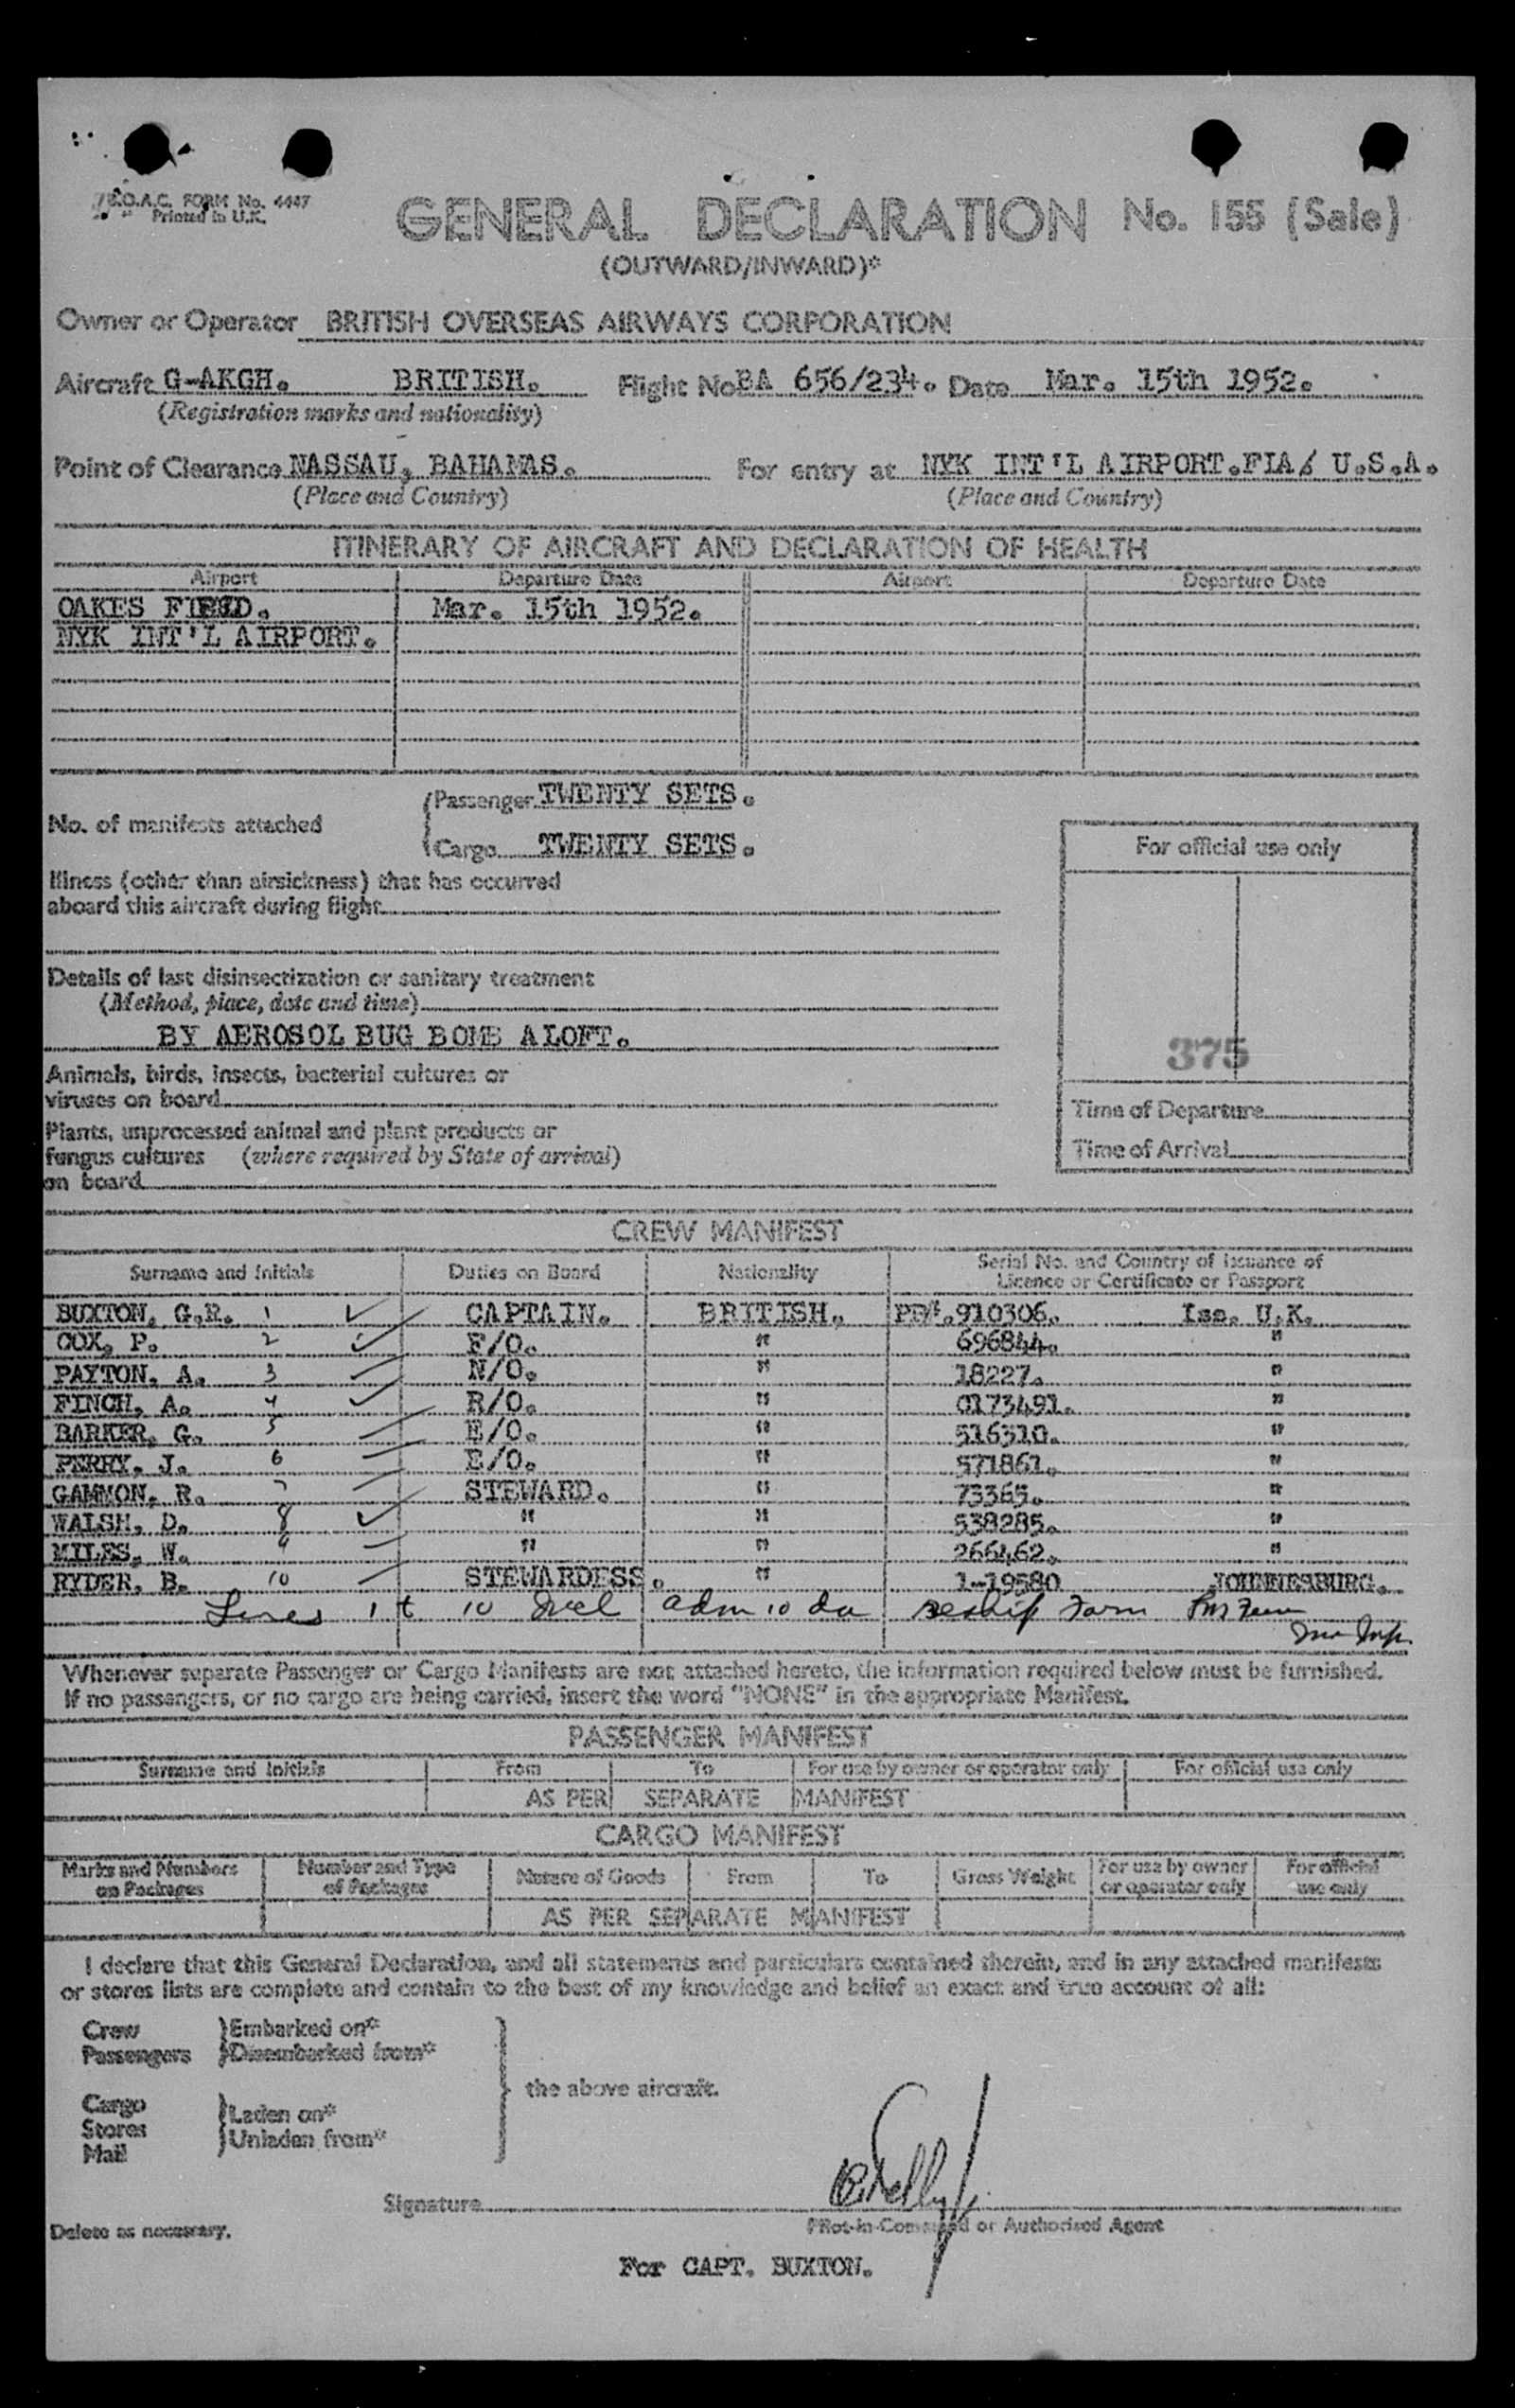 B.O.A.C. FORM No. 4447
Printed in U.K.
GENERAL DECLARATION No. 155 (Sale)
(OUTWARD/INWARD)*
Owner or Operator BRITISH OVERSEAS AIRWAYS CORPORATION
Aircraft G-AKGH. BRITISH. Flight No BA 656/234. Date Mar. 15th 1952.
(Registration marks and nationality)
Point of Clearance NASSAU, BAHAMAS. For entry at NYK INT'L AIRPORT.FIA/ U.S.A.
(Place and Country) (Place and Country)
ITINERARY OF AIRCRAFT AND DECLARATION OF HEALTH
Airport Departure Date Airport Departure Date
OAKES FIELD. Mar. 15th 1952.
NYK INT'L AIRPORT.
No. of manifests attached
(Passenger TWENTY SETS.
(Cargo TWENTY SETS.
For official use only
Illness (other than airsickness) that has occurred
aboard this aircraft during flight
Details of last disinsectization or sanitary treatment
(Method, place, date and time)
BY AEROSOL BUG BOMB ALOFT.
375
Animals, birds, insects, bacterial cultures or
viruses on board
Time of Departure
Plants, unprocessed animal and plant products or
fungus cultures (where required by State of arrival)
Time of Arrival
on board
CREW MANIFEST
Surname and Initials Duties on Board Nationality Serial No. and Country of Issuance of
Licence or Certificate or Passport
BUXTON, G.R. 1 ✓ CAPTAIN. BRITISH. PP#.910306. Iss. U.K.
COX, P. 2 ✓ F/O. " 696844. "
PAYTON, A. 3 N/O. " 18227. "
FINCH, A. 4 ✓ R/O. " 0173491. "
BARKER, G. 5 E/O. " 516310. "
PERRY, J. 6 E/O. " 571861. "
GAMMON, R. 7 STEWARD. " 73365. "
WALSH, D. 8 ✓ " " 538285. "
MILES, W. 9 " " 266462. "
RYDER, B. 10 STEWARDESS. " 1-19580 JOHNNESBURG.
Lines 1 t 10 Incl adm 10 da
Whenever separate Passenger or Cargo Manifests are not attached hereto, the information required below must be furnished.
If no passengers, or no cargo are being carried, insert the word "NONE" in the appropriate Manifest.
PASSENGER MANIFEST
Surname and Initials From To For use by owner or operator only For official use only
AS PER SEPARATE MANIFEST
CARGO MANIFEST
Marks and Numbers on Packages Number and Type of Packages Nature of Goods From To Gross Weight For use by owner or operator only For official use only
AS PER SEPARATE MANIFEST
I declare that this General Declaration, and all statements and particulars contained therein, and in any attached manifests
or stores lists are complete and contain to the best of my knowledge and belief an exact and true account of all:
Crew }Embarked on*
Passengers }Disembarked from*
the above aircraft.
Cargo
Stores }Laden on*
Mail }Unladen from*
Signature
Delete as necessary.
Pilot-in-Command or Authorised Agent
For CAPT. BUXTON.